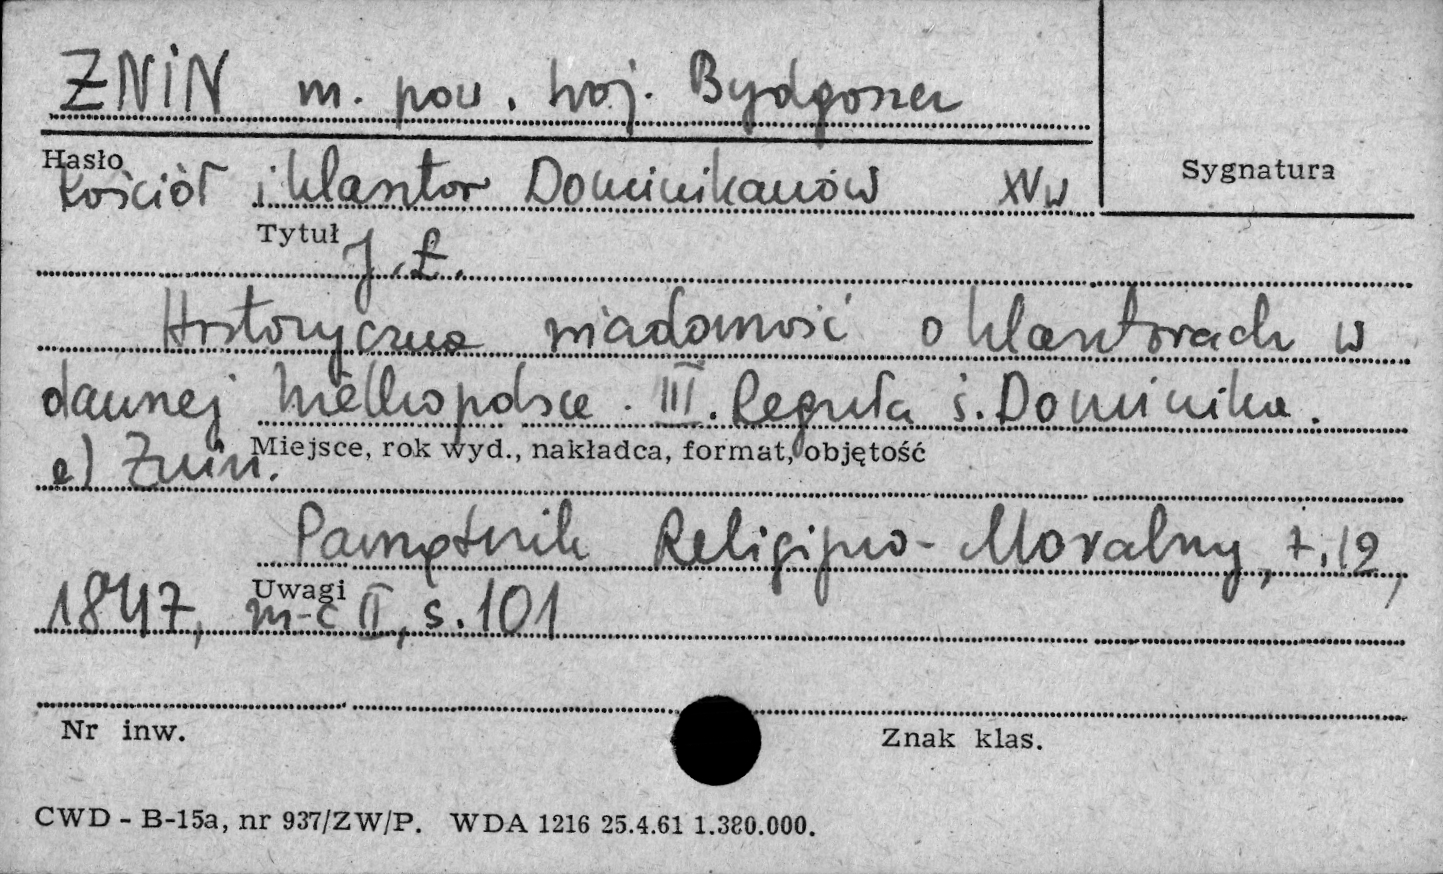 ŻNIN m. pow. woj. Bydgoszcz
Hasło
Sygnatura
Kościół i klasztor Dominikanów XV w
Tytuł
J. Ł.
Historyczna wiadomość o klasztorach w
dawnej Wielkopolsce. III. Reguła ś. Dominika.
Miejsce, rok wyd., nakładca, format, objętość
e) Żnin.
Pamiętnik Religijno-Moralny, t. 12,
Uwagi
1847, m-c II, s. 101
Nr inw.
Znak klas.
CWD - B-15a, nr 937/ZW/P. WDA 1216 25.4.61 1.380.000.